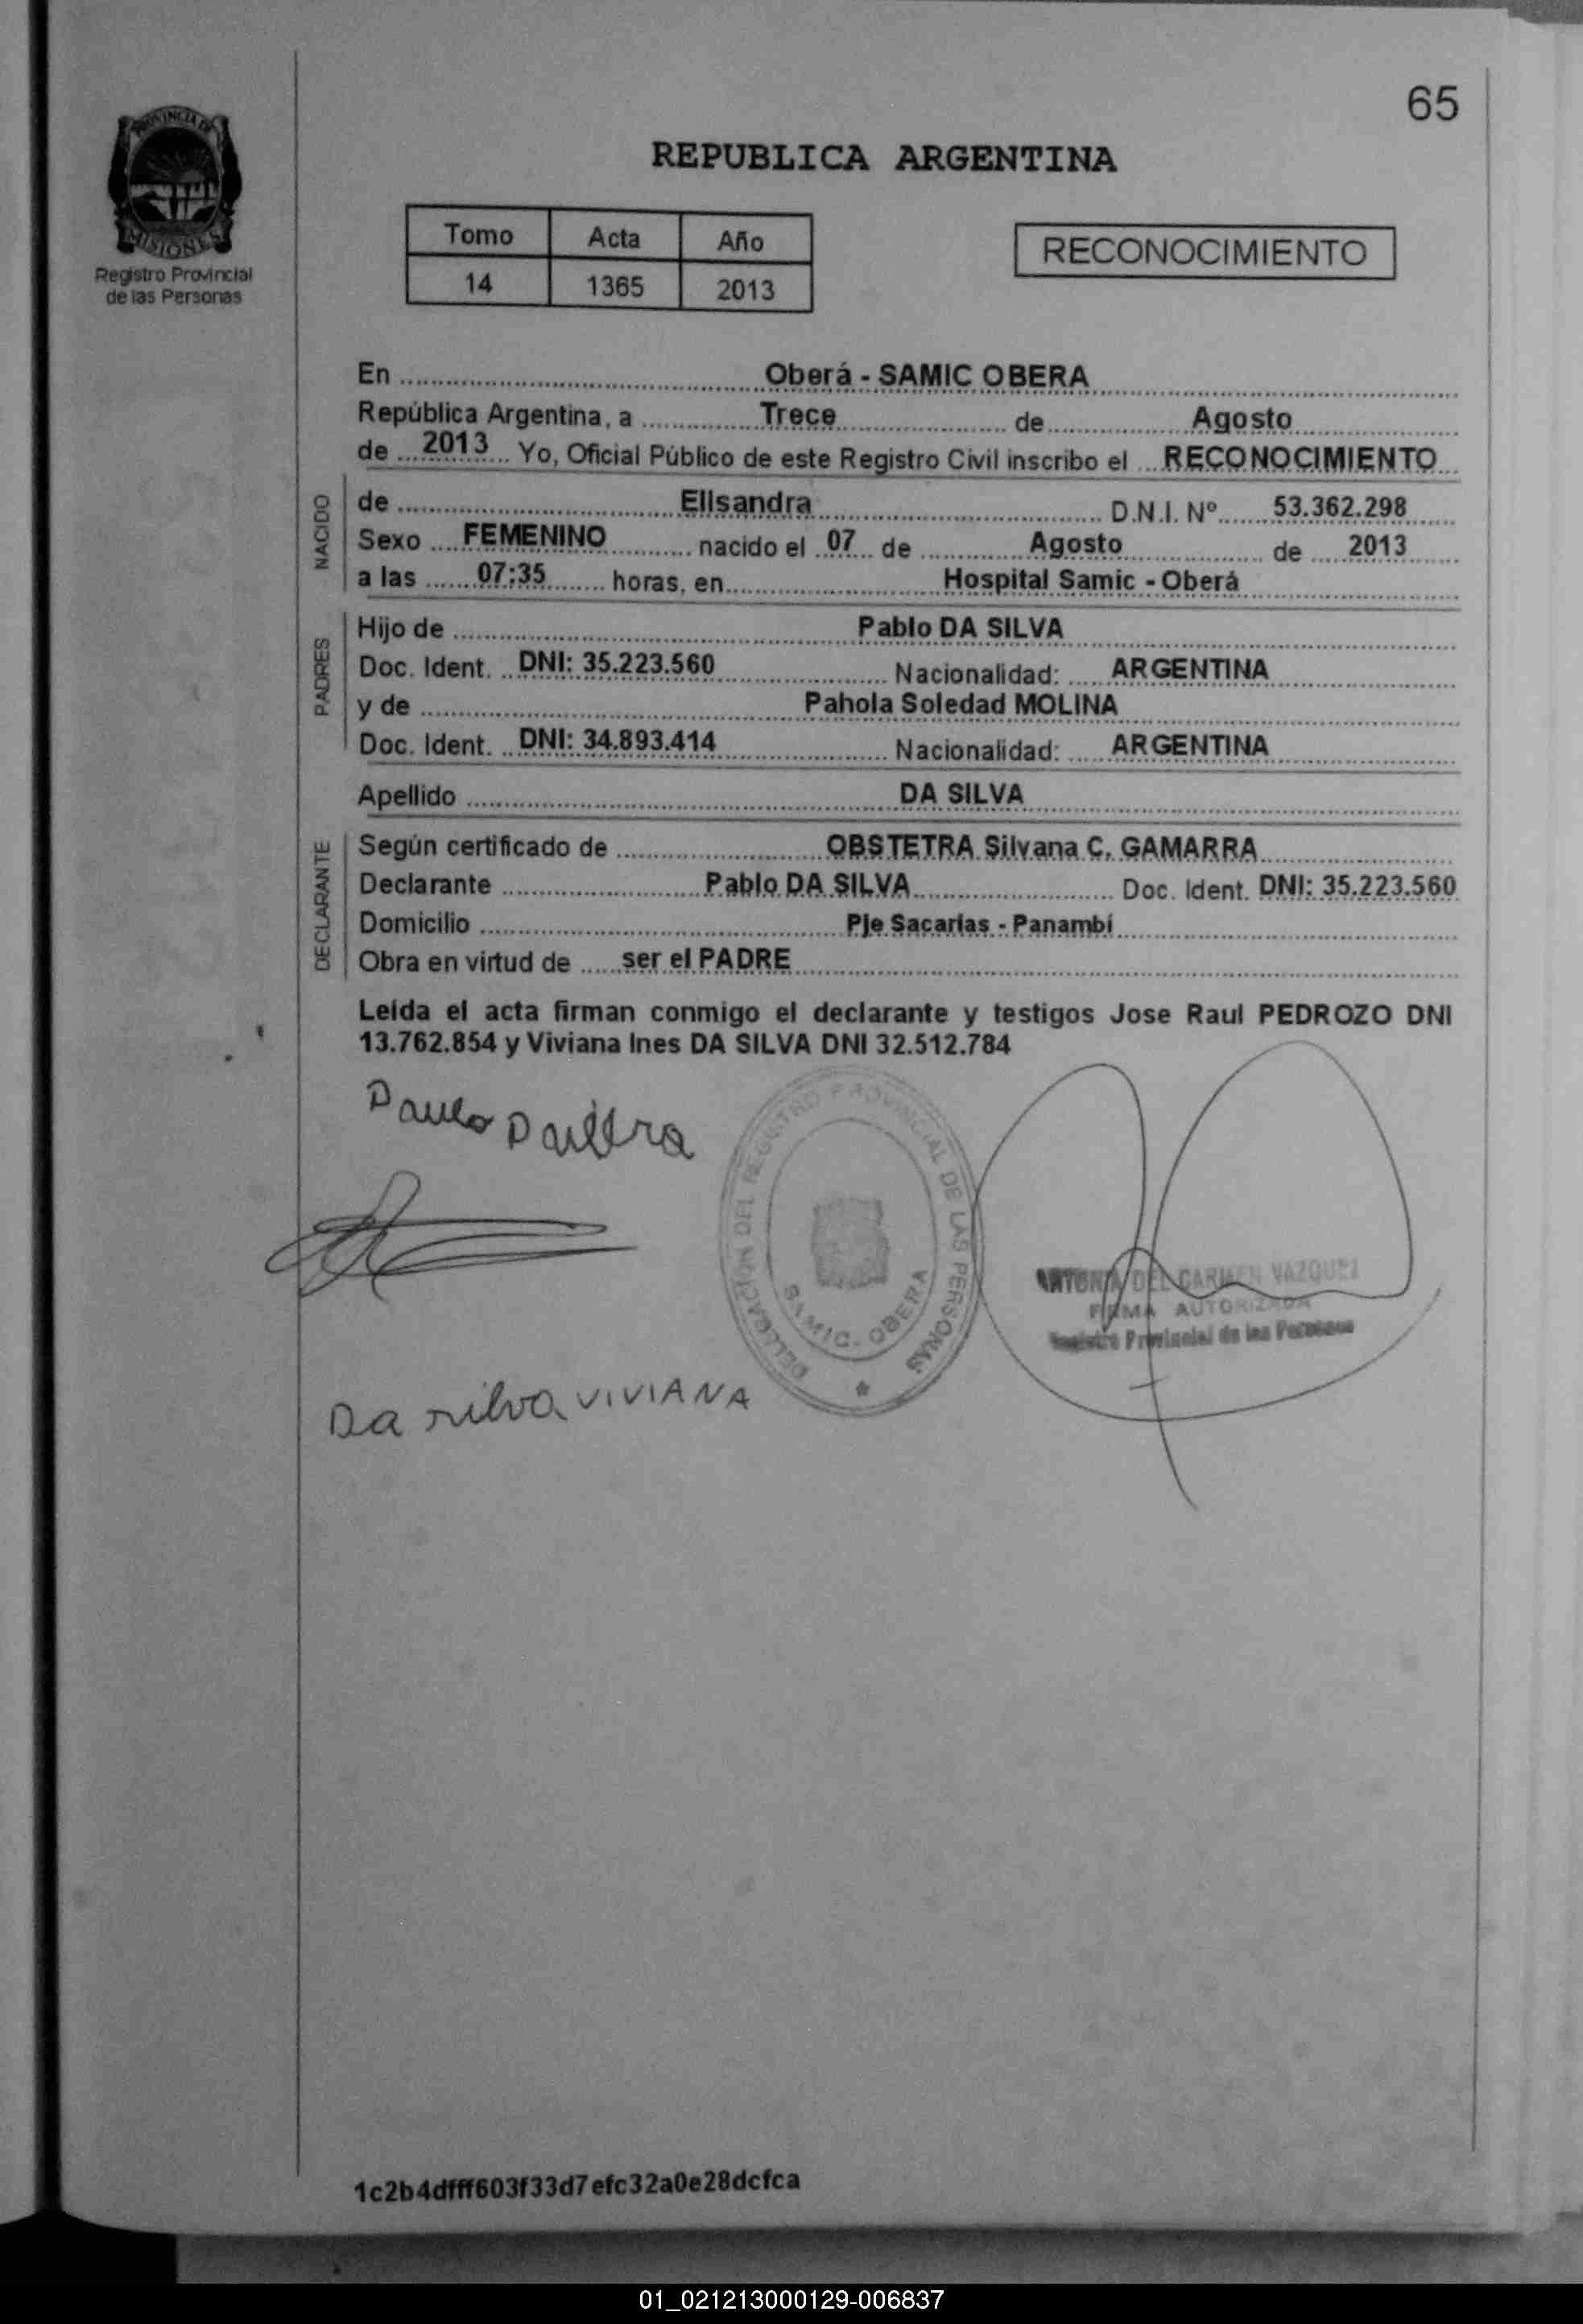 65
PROVINCIA DE
MISIONES
Registro Provincial
de las Personas
REPUBLICA ARGENTINA
Tomo Acta Año
14 1365 2013
RECONOCIMIENTO
En Oberá - SAMIC OBERA
República Argentina, a Trece de Agosto
de 2013 Yo, Oficial Público de este Registro Civil inscribo el RECONOCIMIENTO
NACIDO
de Elisandra D.N.I. Nº 53.362.298
Sexo FEMENINO nacido el 07 de Agosto de 2013
a las 07:35 horas, en Hospital Samic - Oberá
PADRES
Hijo de Pablo DA SILVA
Doc. Ident. DNI: 35.223.560 Nacionalidad: ARGENTINA
y de Pahola Soledad MOLINA
Doc. Ident. DNI: 34.893.414 Nacionalidad: ARGENTINA
Apellido DA SILVA
DECLARANTE
Según certificado de OBSTETRA Silvana C. GAMARRA
Declarante Pablo DA SILVA Doc. Ident. DNI: 35.223.560
Domicilio Pje Sacarias - Panambí
Obra en virtud de ser el PADRE
Leída el acta firman conmigo el declarante y testigos Jose Raul PEDROZO DNI
13.762.854 y Viviana Ines DA SILVA DNI 32.512.784
DELEGACION DEL REGISTRO PROVINCIAL DE LAS PERSONAS
SAMIC - OBERA
DEL CARMEN VAZQUEZ
FIRMA AUTORIZADA
Registro Provincial de las Personas
Da silva VIVIANA
1c2b4dfff603f33d7efc32a0e28dcfca
01_021213000129-006837